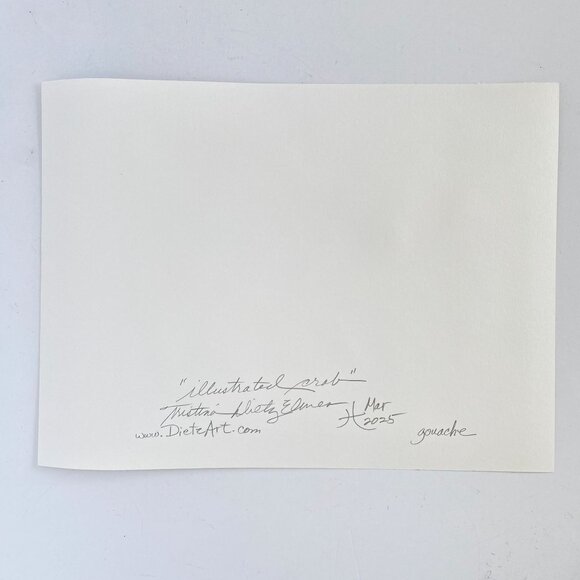 "illustrated crab"
Tristina Dietz Elmes
www.DietzArt.com
Mar
2025
gouache